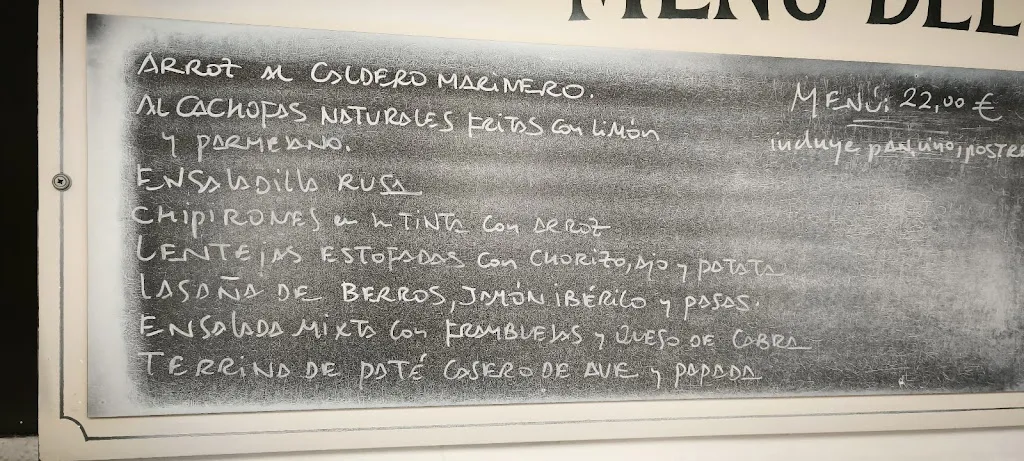 MENÚ DEL
ARROZ AL CALDERO MARINERO.
ALCACHOFAS NATURALES FRITAS CON LIMÓN
Y PARMESANO.
ENSALADILLA RUSA
CHIPIRONES en su TINTA CON ARROZ
LENTEJAS ESTOFADAS CON CHORIZO, AJO Y PATATA
LASAÑA DE BERROS, JAMÓN IBÉRICO Y PASAS.
ENSALADA MIXTA CON FRAMBUESAS Y QUESO DE CABRA
TERRINA DE PATÉ CASERO DE AVE Y PAPADA
MENÚ: 22,00 €
incluye pan, vino, POSTRE